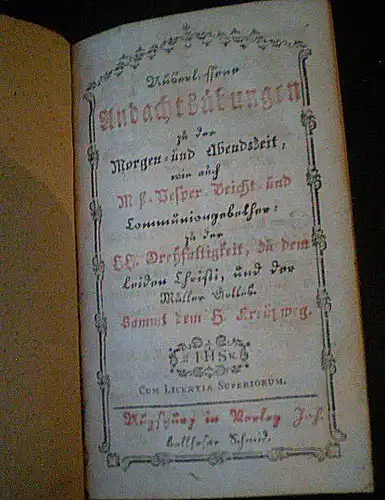 Auserlesene
Andachtsübungen
zu der
Morgen- und Abendszeit,
wie auch
Meß- Vesper- Beicht- und
Communiongebether:
zu der
HH. Dreyfaltigkeit, zu dem
Leiden Christi, und der
Mutter Gottes.
Sammt dem H. Kreuzweg.
IHS
CUM LICENTIA SUPERIORUM.
Augspurg in Verlag Joh.
Balthasar Schmid.